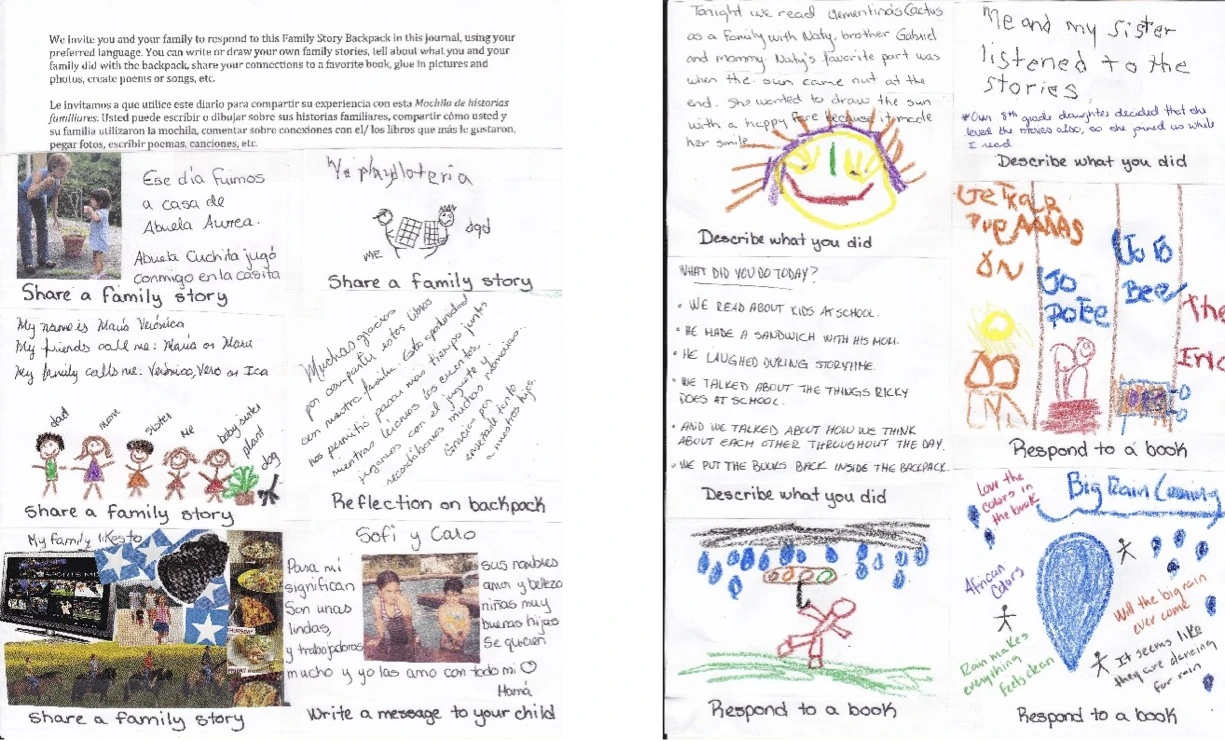 We invite you and your family to respond to this Family Story Backpack in this journal, using your
preferred language. You can write or draw your own family stories, tell about what you and your
family did with the backpack, share your connections to a favorite book, glue in pictures and
photos, create poems or songs, etc.
Le invitamos a que utilice este diario para compartir su experiencia con esta Mochila de historias
familiares. Usted puede escribir o dibujar sobre sus historias familiares, compartir cómo usted y
su familia utilizaron la mochila, comentar sobre conexiones con el/ los libros que más le gustaron,
pegar fotos, escribir poemas, canciones, etc.
Ese día fuimos
a casa de
Abuela Aurea.
Abuela Cuchita jugó
conmigo en la casita
Share a family story
play loteria
dad
ME
Share a family story
My name is María Verónica
My friends call me: María or Maru
My family calls me: Verónica, Vero or Ica
dad
mom
sister
me
baby sister
plant
dog
Share a family story
Muchas gracias
por compartir estos libros
con nuestra familia. Esta oportunidad
nos permitió pasar más tiempo juntos
mientras leíamos los cuentos,
jugamos con el juguete y
recordábamos muchas memorias.
Gracias por
enseñarle tanto
a nuestros hijos.
Reflection on backpack
My family likes to
Share a family story
Sofi y Caro
Para mi
significan
Son unas
lindas,
y trabajadoras
sus nombres
amor y belleza
niñas muy
buenas hijas
Se quieren
mucho y yo las amo con todo mi
Mamá
Write a message to your child
Tonight we read Clementina's Cactus
as a family with Naty, brother Gabriel
and mommy. Naty's favorite part was
when the sun came out at the
end. She wanted to draw the sun
with a happy face because it made
her smile.
Describe what you did
Me and my sister
listened to the
stories
*Our 8th grade daughter decided that she
loved the stories also, so she joined us while
I read
Describe what you did
WHAT DID YOU DO TODAY?
• WE READ ABOUT KIDS AT SCHOOL.
• HE MADE A SANDWICH WITH HIS MOM.
• HE LAUGHED DURING STORYTIME.
• WE TALKED ABOUT THE THINGS RICKY
DOES AT SCHOOL.
• AND WE TALKED ABOUT HOW WE THINK
ABOUT EACH OTHER THROUGHOUT THE DAY.
• WE PUT THE BOOKS BACK INSIDE THE BACKPACK.
Describe what you did
Go
Potee
Go To
Bed
the
End
Respond to a book
Respond to a book
Love the
colors in
the book
Big Rain Coming
African
Colors
Will the big rain
ever come
Rain makes
everything
feels clean
It seems like
they are dancing
for rain
Respond to a book